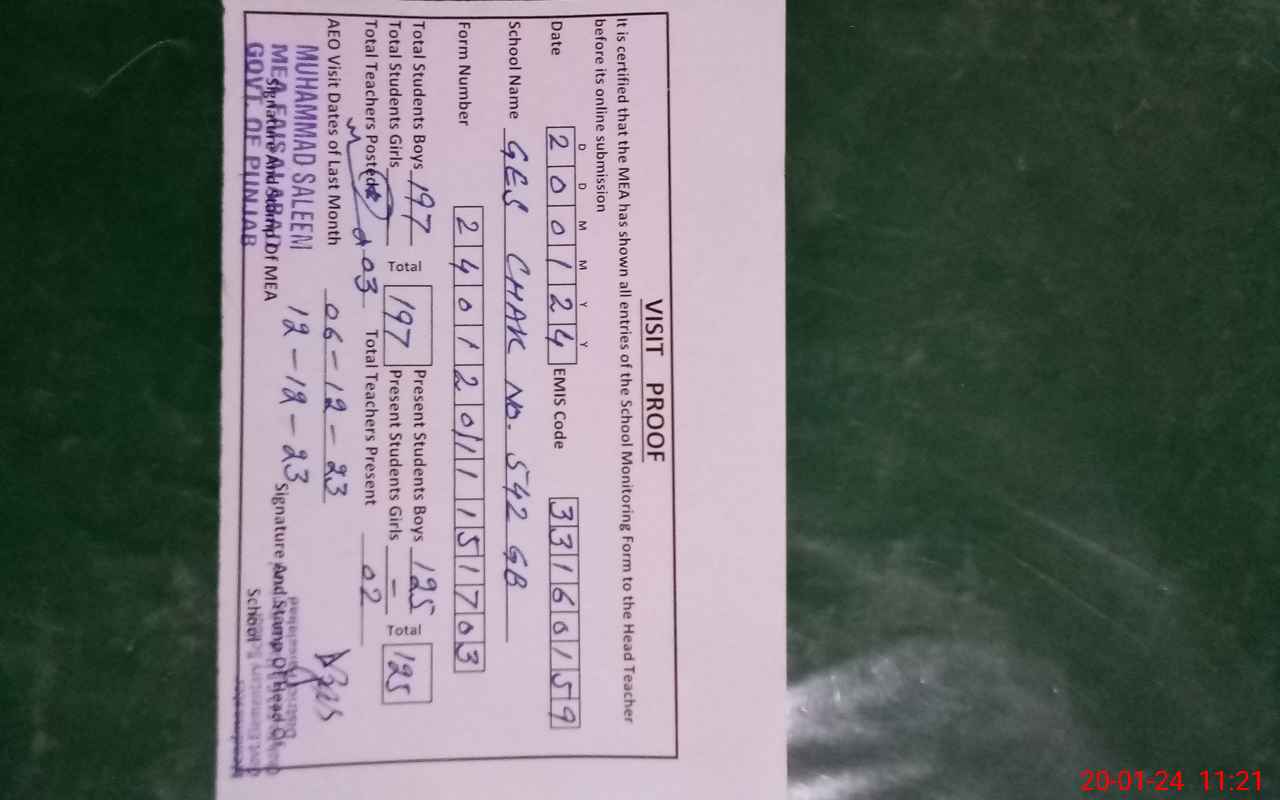 VISIT PROOF
It is certified that the MEA has shown all entries of the School Monitoring Form to the Head Teacher
before its online submission
D D M M Y Y
Date 200124 EMIS Code 33160159
School Name GES CHAK No. 542 GB
Form Number 24012011151703
Total Students Boys 197 Total 197 Present Students Boys 125 Total 125
Total Students Girls Present Students Girls -
Total Teachers Posted 03 Total Teachers Present 02
AEO Visit Dates of Last Month 06-12-23
12-12-23
MUHAMMAD SALEEM
MEA FAISALABAD
GOVT. OF PUNJAB
Signature And Stamp Of MEA
Signature And Stamp Of Head Of
School
20-01-24 11:21